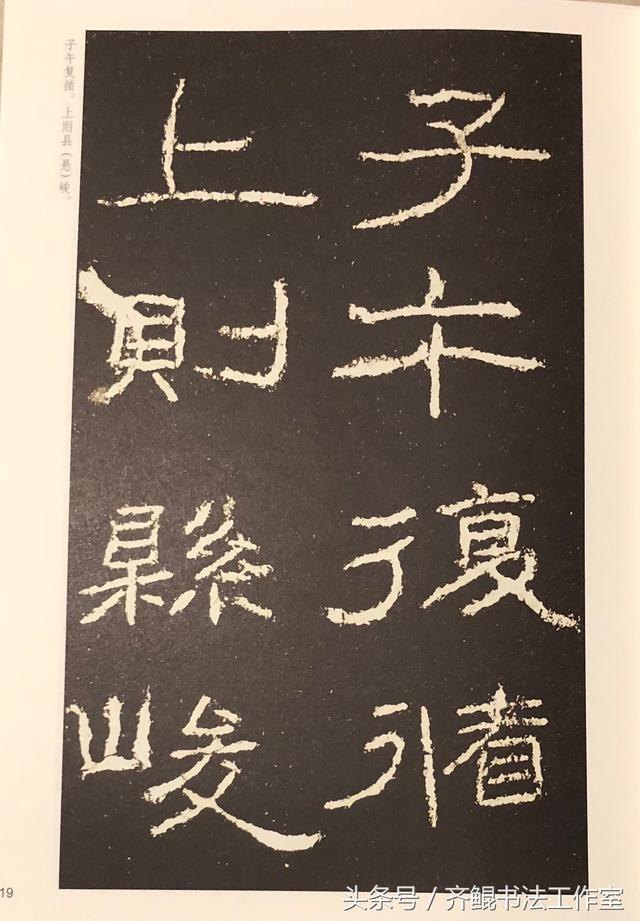 子午復循
上則縣峻
子午复循。上则县（悬）峻。
19
头条号／齐鲲书法工作室